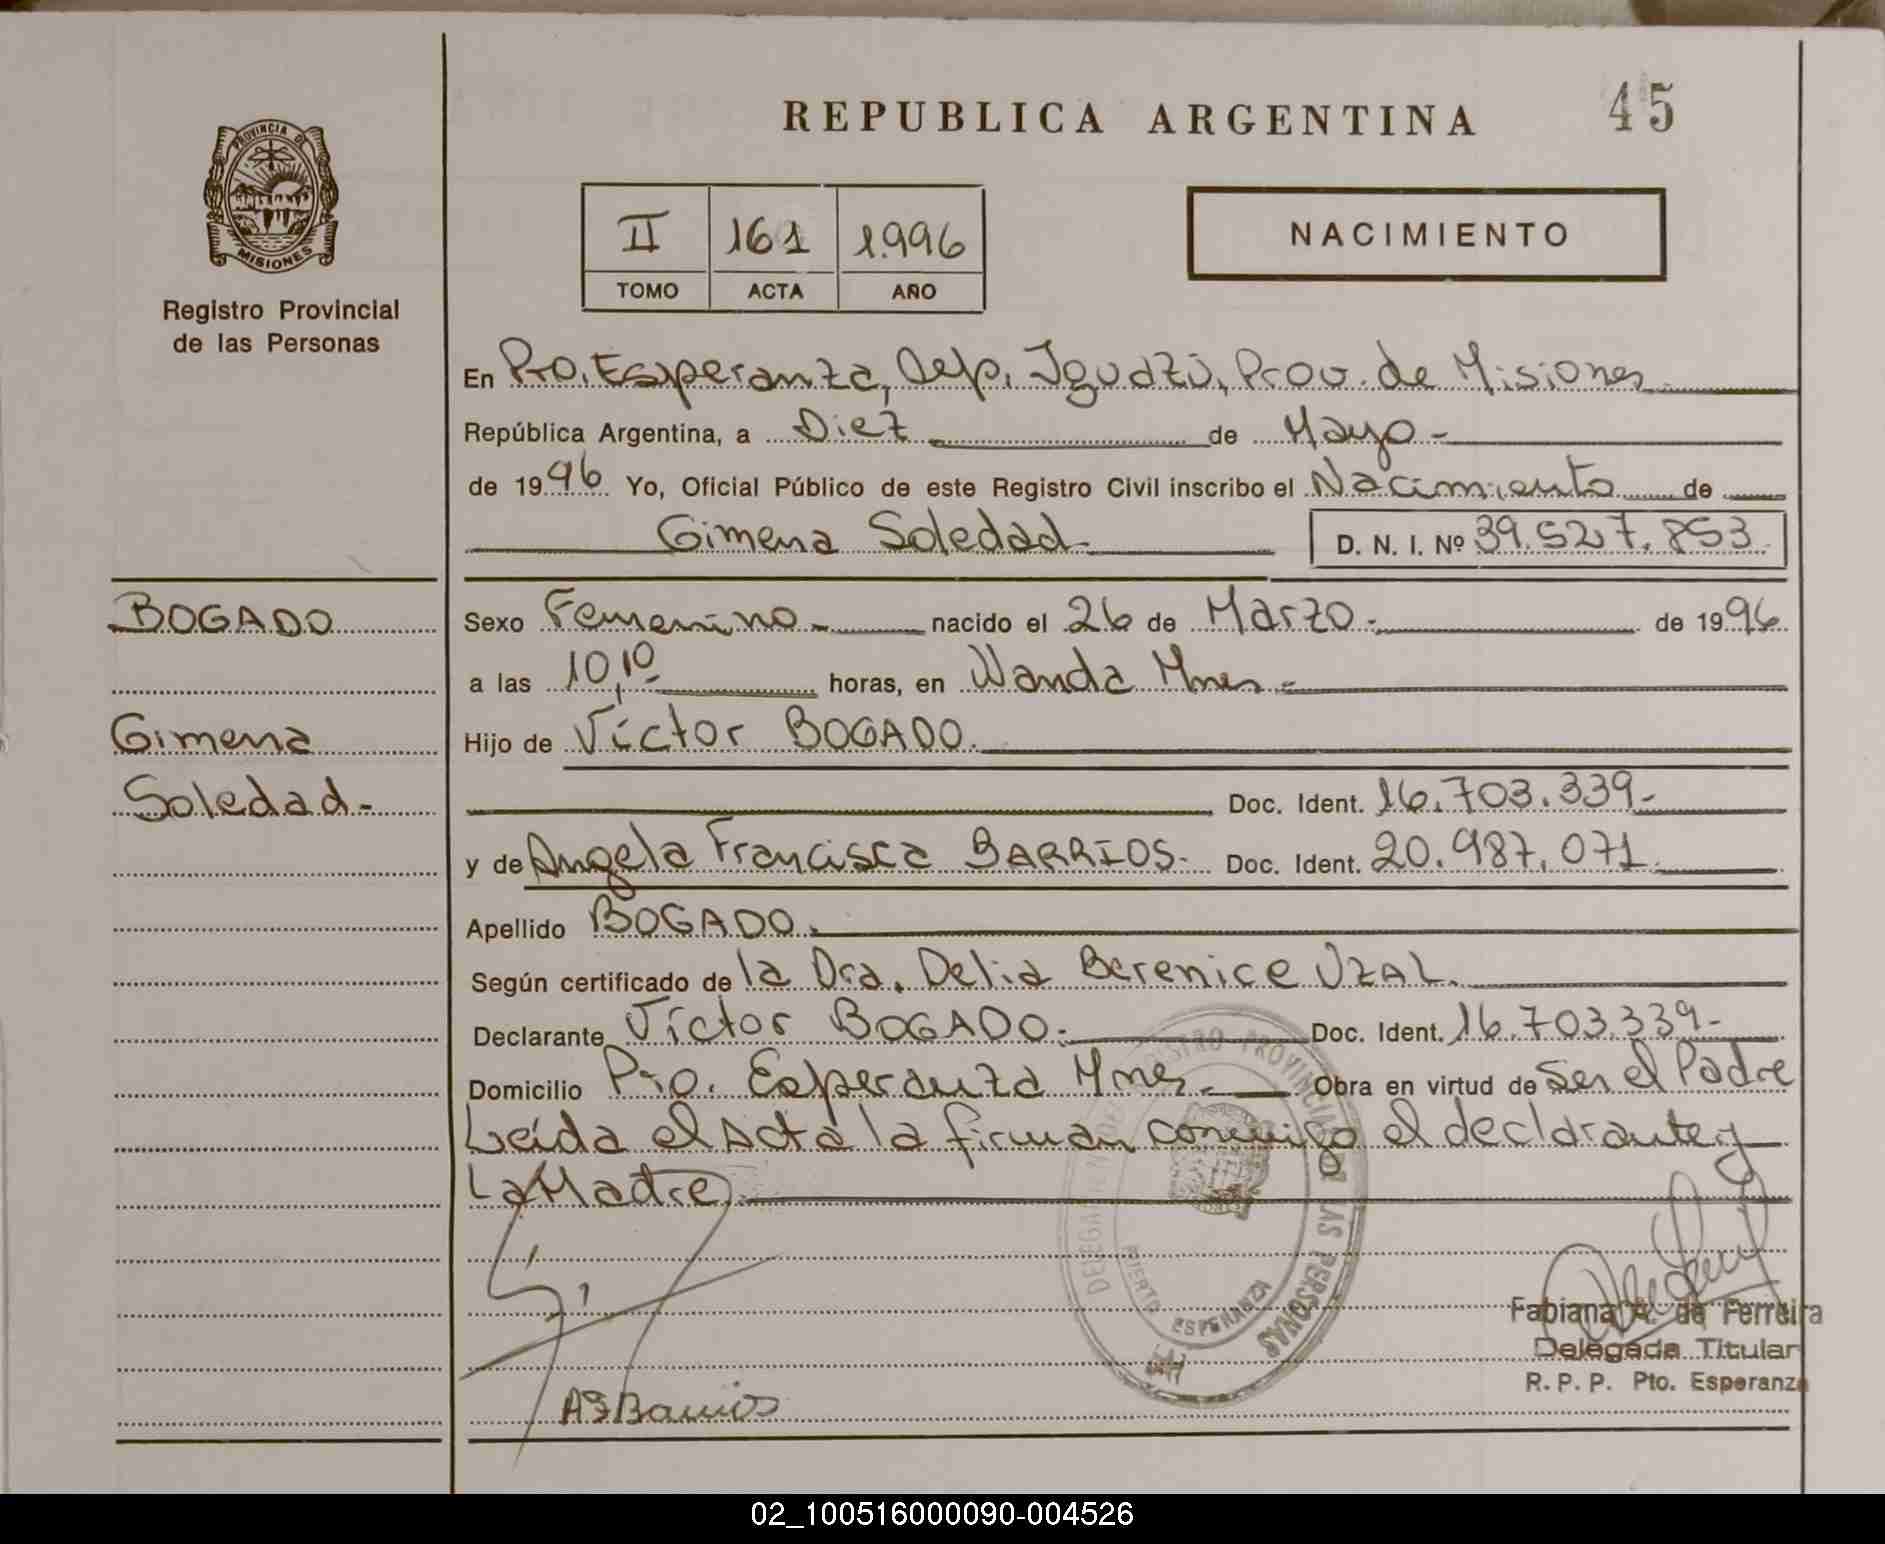 REPUBLICA ARGENTINA
45
PROVINCIA DE
MISIONES
Registro Provincial
de las Personas
II 161 1.996
TOMO ACTA AÑO
NACIMIENTO
En Pto. Esperanza, Dep. Iguazú, Prov. de Misiones
República Argentina, a Diez de Mayo -
de 1996 Yo, Oficial Público de este Registro Civil inscribo el Nacimiento de
Gimena Soledad D. N. I. Nº 39.527.853
BOGADO
Gimena
Soledad-
Sexo Femenino - nacido el 26 de Marzo - de 1996
a las 10,10 horas, en Wanda Mnes -
Hijo de Víctor BOGADO.
Doc. Ident. 16.703.339-
y de Angela Francisca BARRIOS- Doc. Ident. 20.987.071
Apellido BOGADO.
Según certificado de la Dra. Delia Berenice UZAL.
Declarante Víctor BOGADO- Doc. Ident. 16.703.339-
Domicilio Pto. Esperanza Mnes - Obra en virtud de Ser el Padre
Leída el Acta la firman conmigo el declarante y
La Madre
DELEGACION DEL REGISTRO PROVINCIAL DE LAS PERSONAS
PUERTO ESPERANZA
AFBarrios
Fabiana A. de Ferreira
Delegada Titular
R. P. P. Pto. Esperanza
02_100516000090-004526